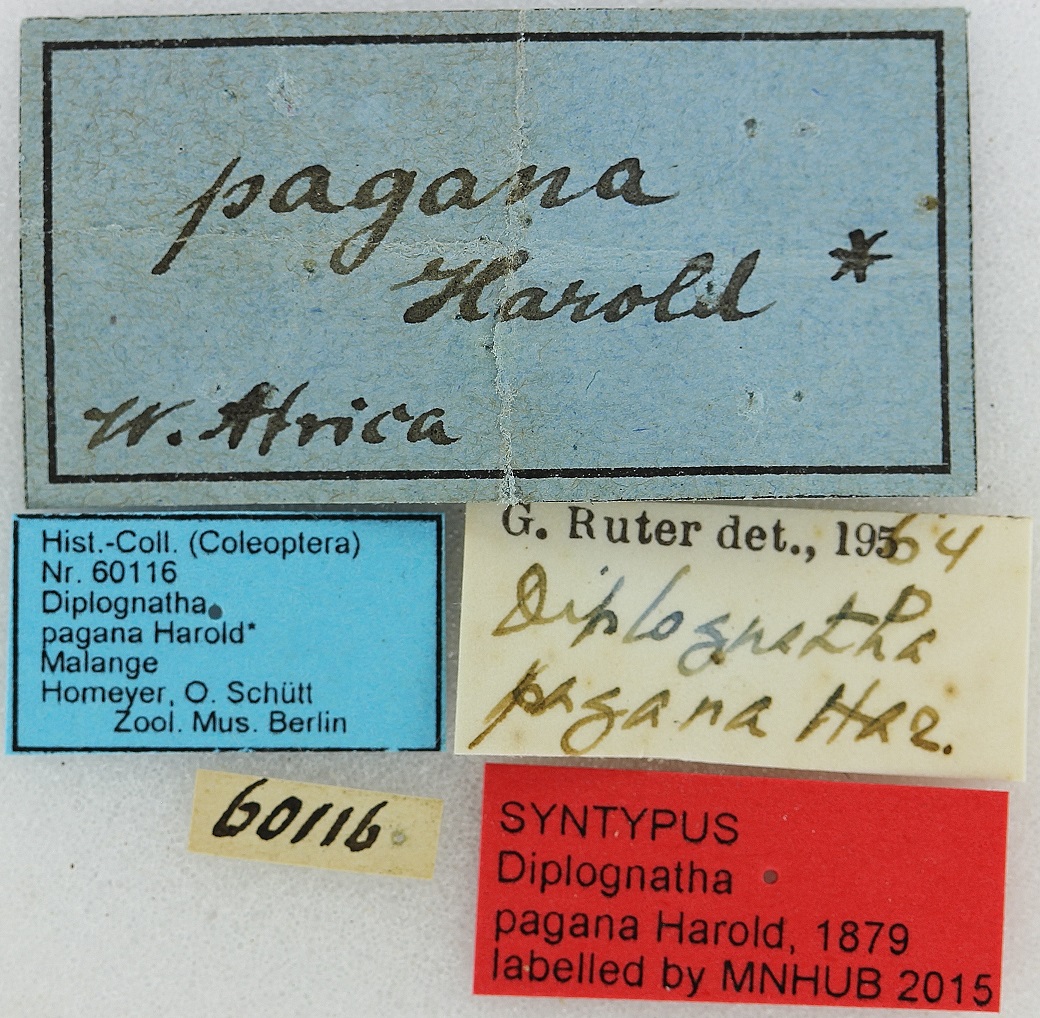 pagana
Harold *
W. Africa
Hist.-Coll. (Coleoptera)
Nr. 60116
Diplognatha
pagana Harold*
Malange
Homeyer, O. Schütt
Zool. Mus. Berlin
G. Ruter det., 1964
Diplognatha
pagana Har.
60116
SYNTYPUS
Diplognatha
pagana Harold, 1879
labelled by MNHUB 2015